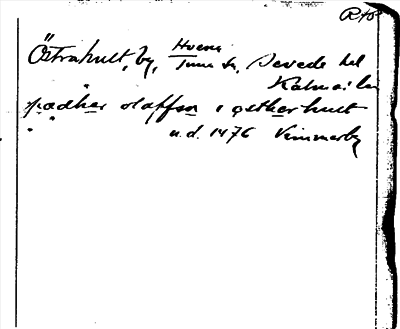 Östrahult, by, Tuna sn, Sevede hd
Kalmar län
pædher olaffsn i østherhult
u.d. 1476 Vimmerby